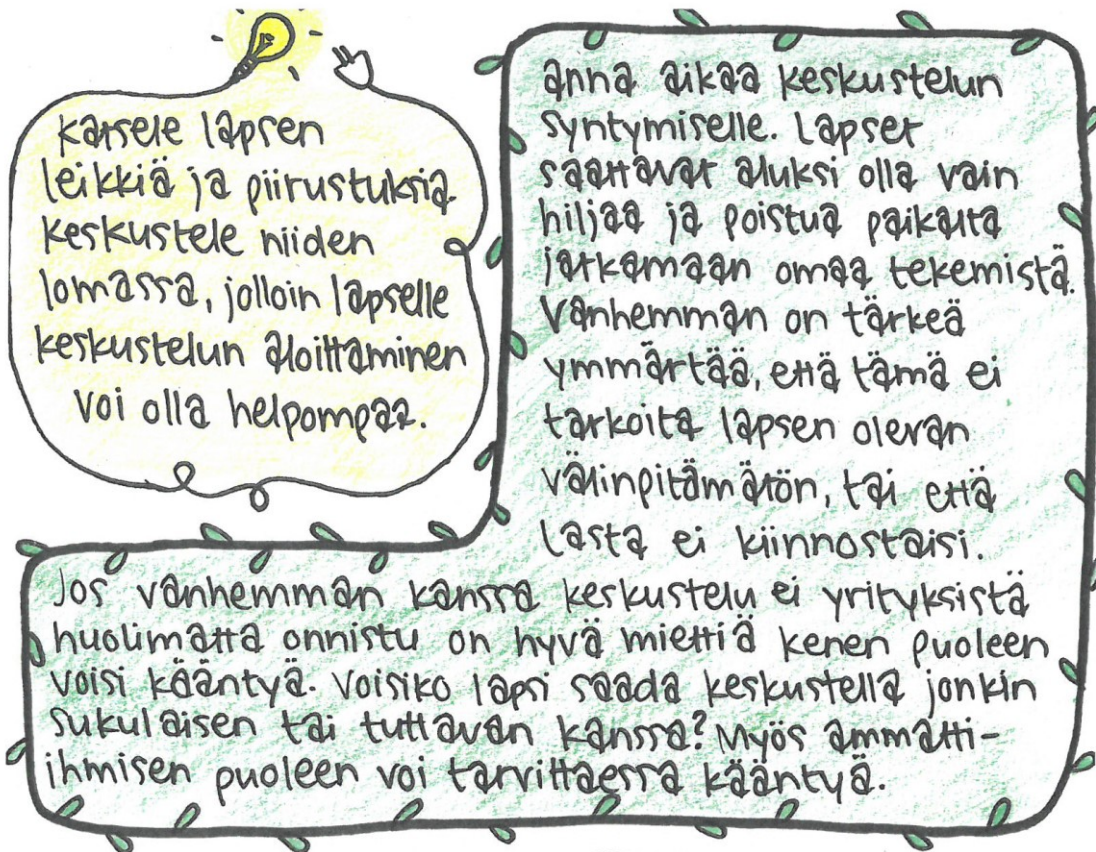 Katsele lapsen
leikkiä ja piirustuksia.
Keskustele niiden
lomassa, jolloin lapselle
keskustelun aloittaminen
voi olla helpompaa.
anna aikaa keskustelun
syntymiselle. Lapset
saattavat aluksi olla vain
hiljaa ja poistua paikalta
jatkamaan omaa tekemistä.
Vanhemman on tärkeä
ymmärtää, että tämä ei
tarkoita lapsen olevan
välinpitämätön, tai että
Lasta ei kiinnostaisi.
Jos vanhemman kanssa keskustelu ei yrityksistä
huolimatta onnistu on hyvä miettiä kenen puoleen
voisi kääntyä. Voisiko lapsi saada keskustella jonkin
sukulaisen tai tuttavan kanssa? Myös ammatti-
ihmisen puoleen voi tarvittaessa kääntyä.